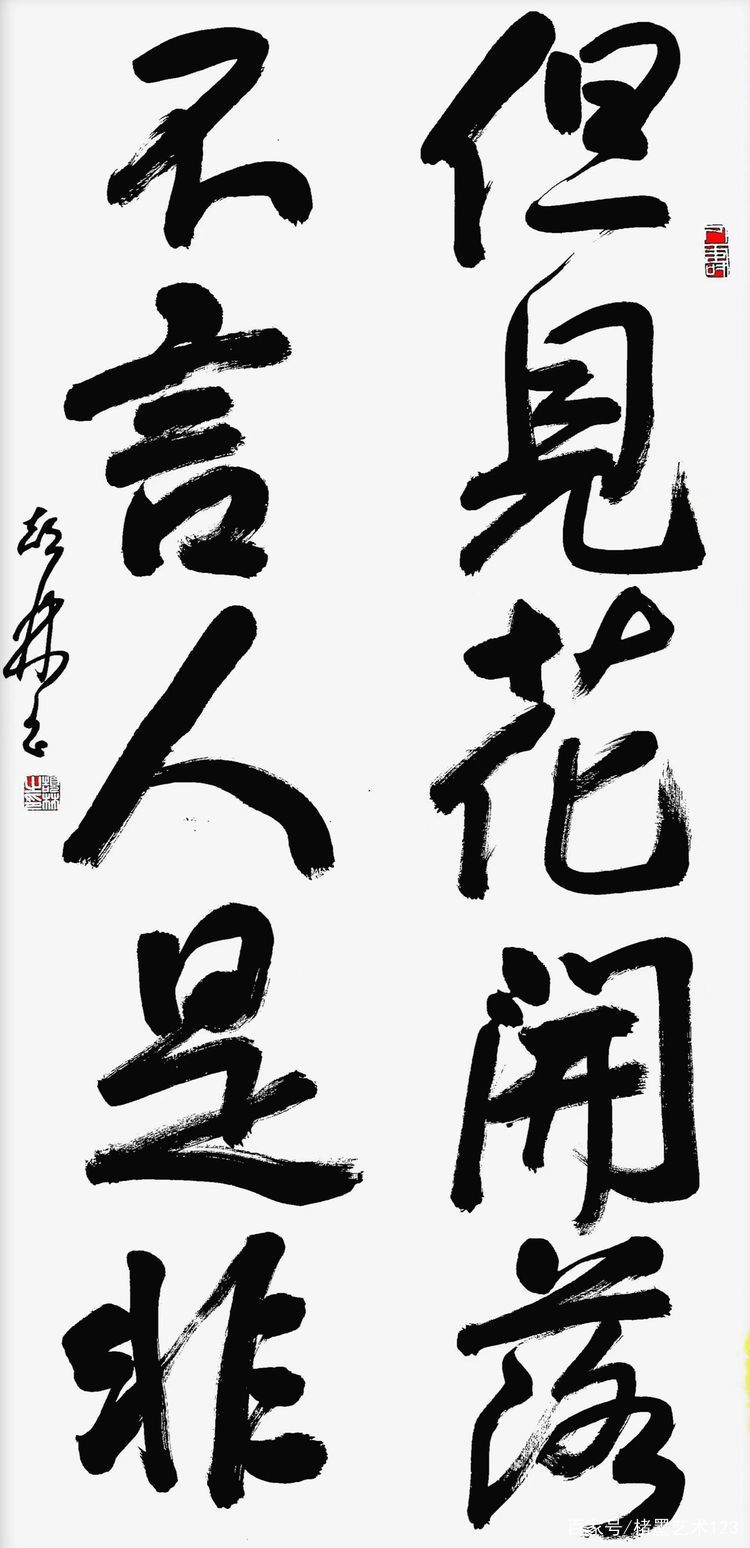 但見花開落
不言人是非
百家号/楮墨艺术123